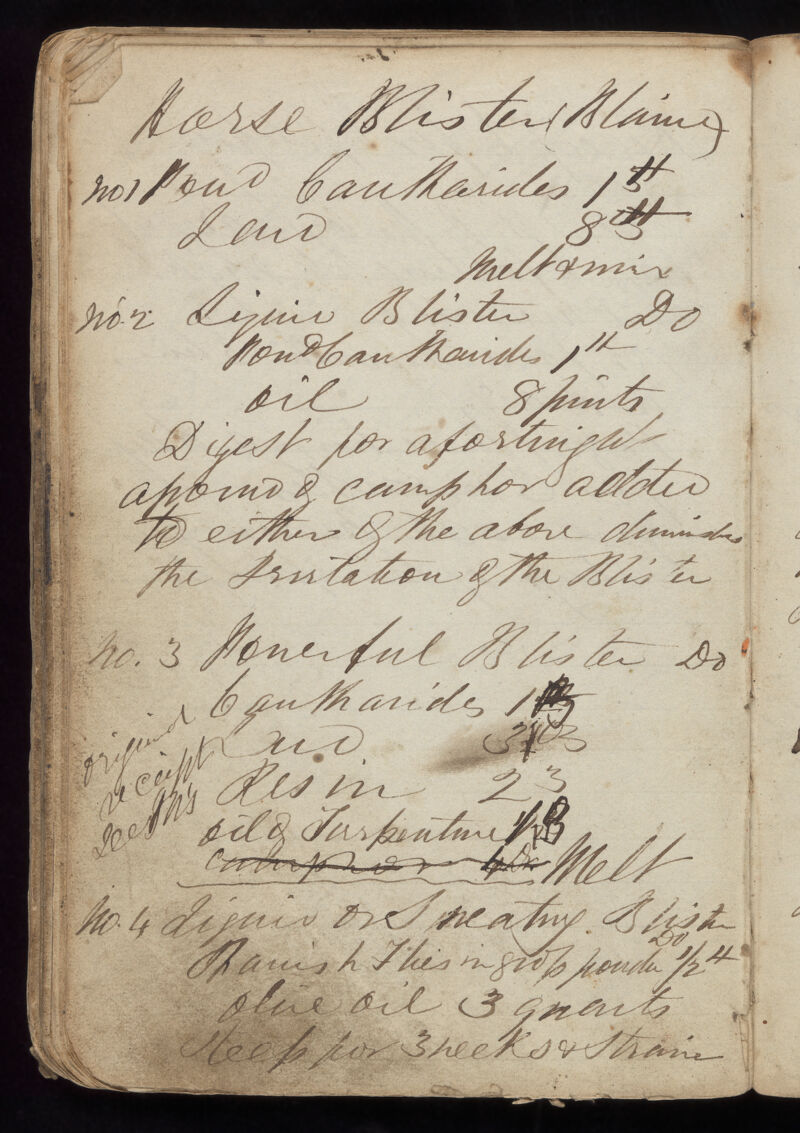 Horse Blister (Blaine)
No 1 Powd Cantharides 1 ℔
Lard 8 ℔
Melt & mix
No 2 Liquid Blister Do
Powd Cantharides 1 ℔
oil 8 pints
Digest for a fortnight
a pound of camphor added
to either of the above diminishes
the Irritation of the Blister
No. 3 Powerful Blister Do
Cantharides 1 ℥
Lard 3 ℥
Resin 2 ℥
oil of Turpentine 1/2 ℥
camphor Melt
original
receipt
See
No. 4 Liquid or Sweating Blister
Do
Spanish Flies in gross powder 1/2 ℔
olive oil 3 quarts
Steep for 3 weeks & Strain